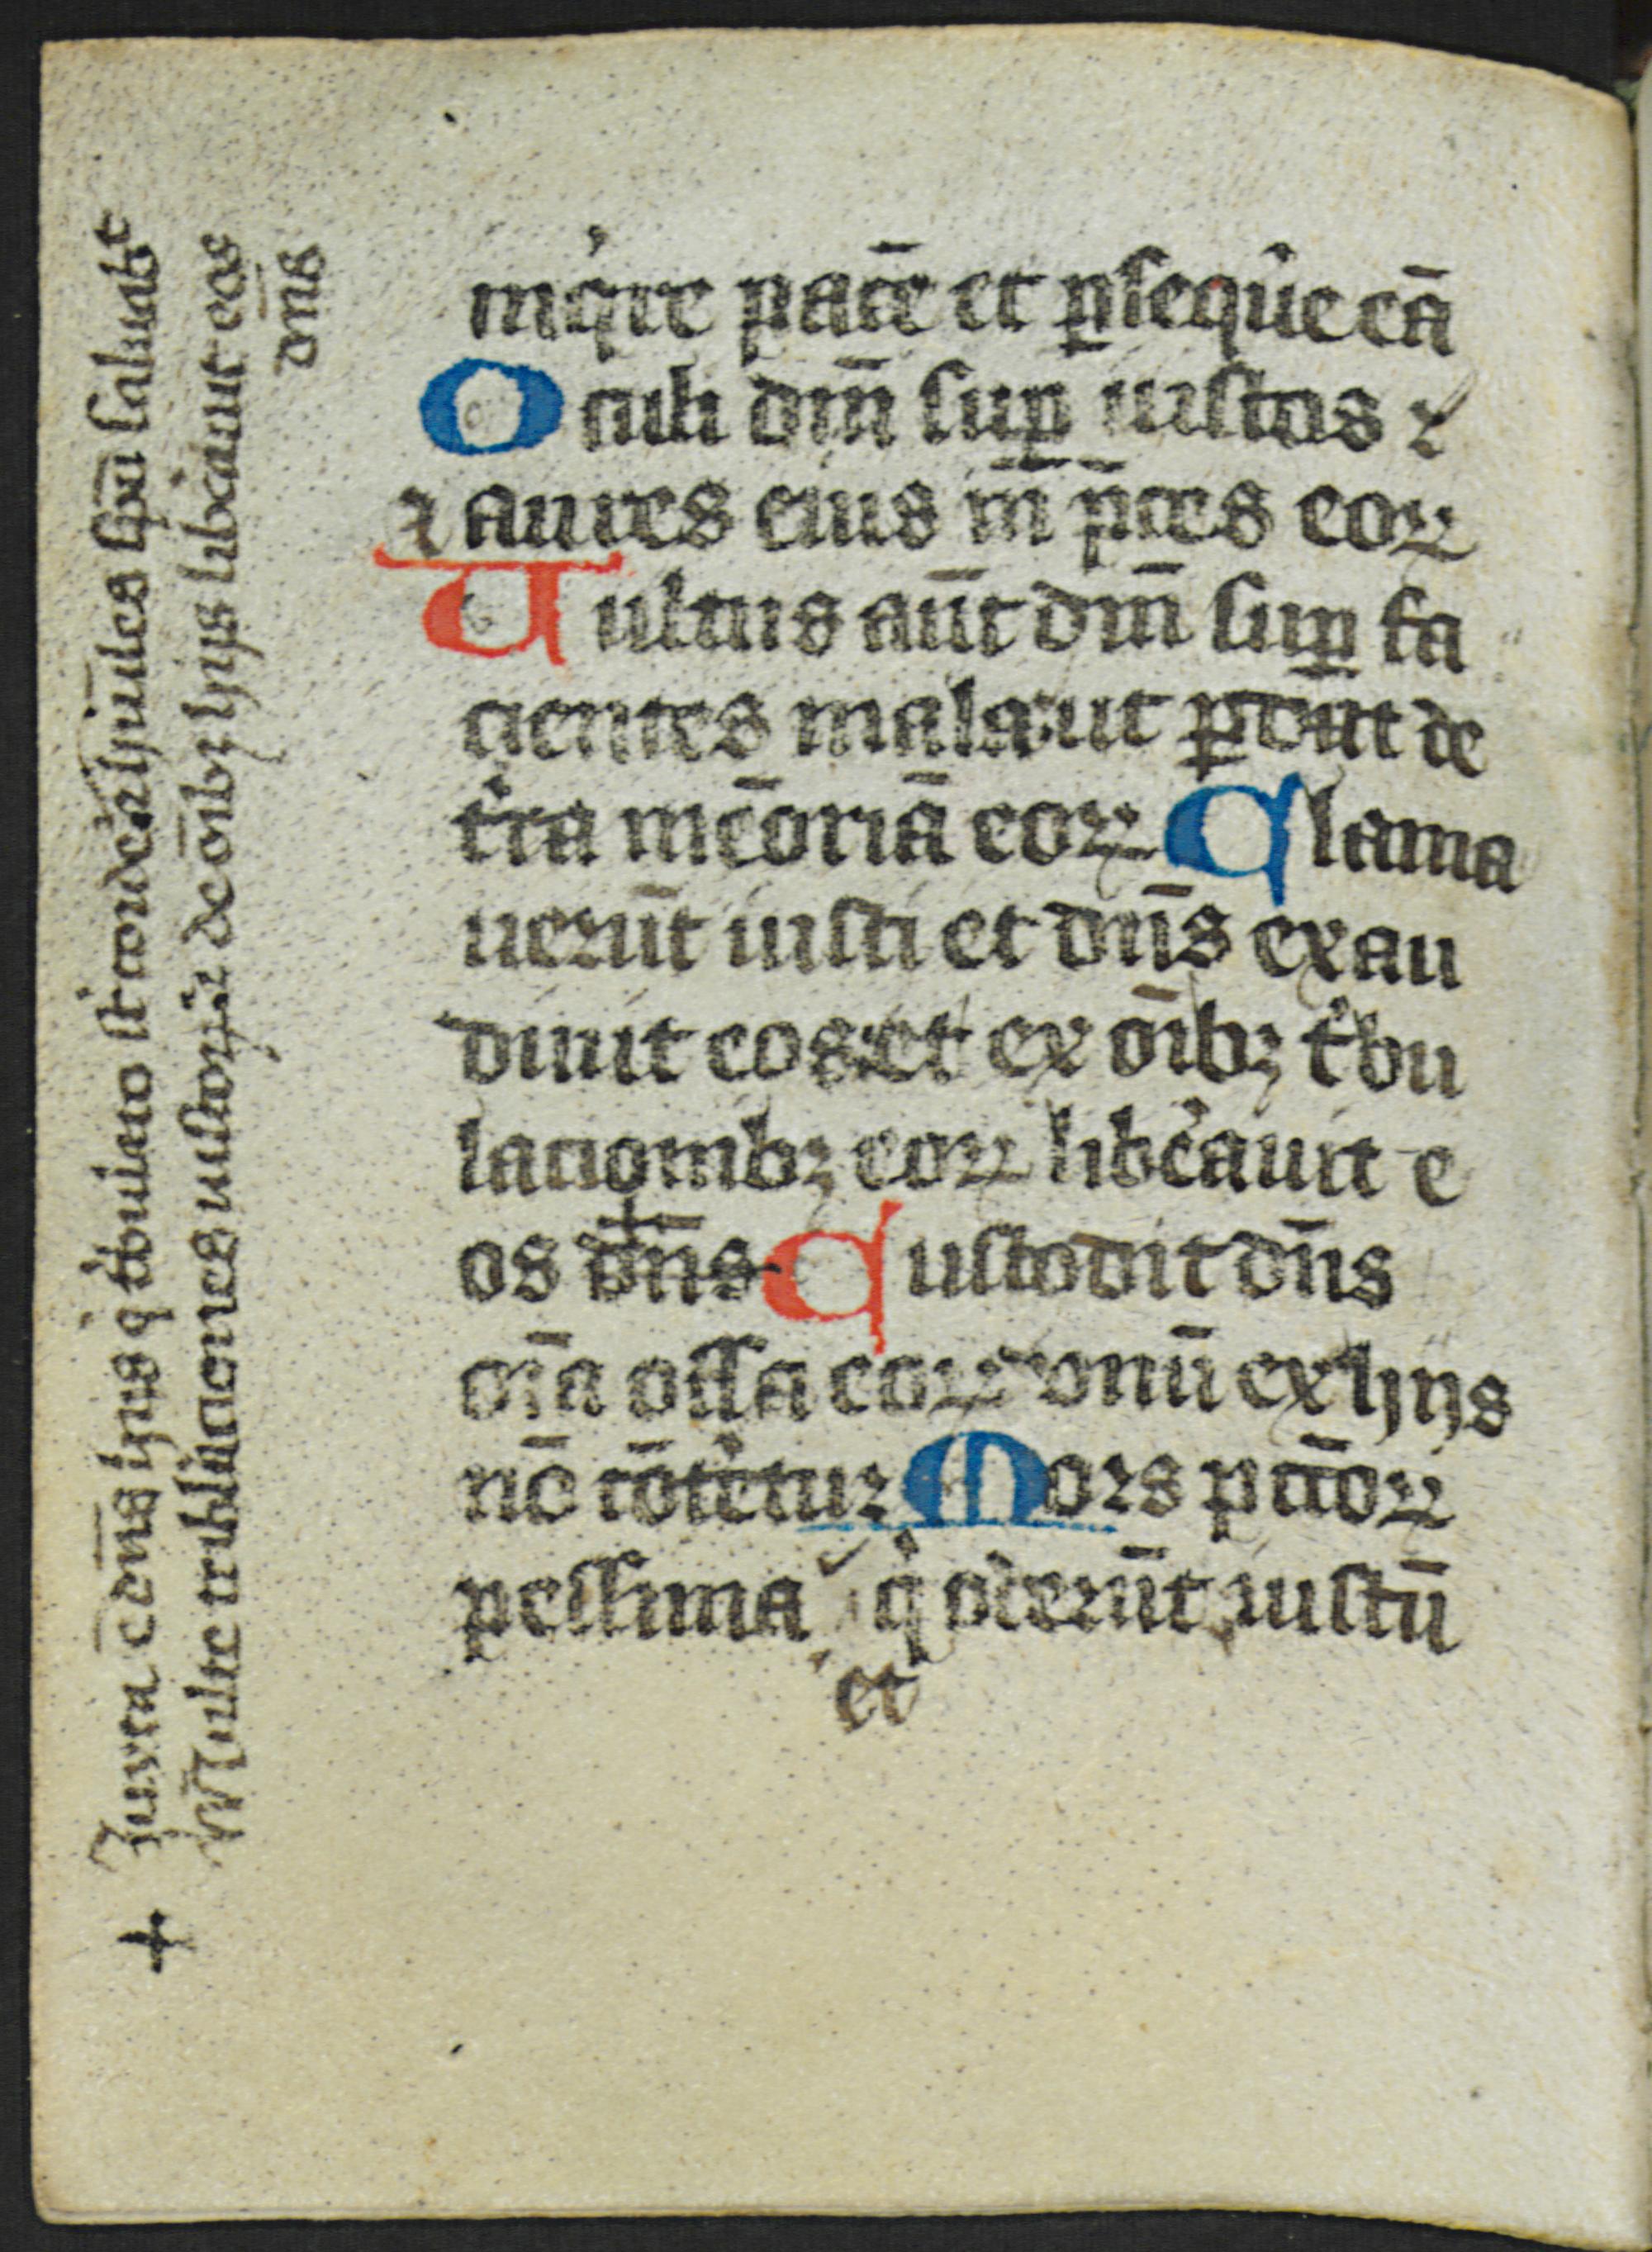 inq̓re pacē et ꝑseq̓re eā
Oculi dm̄ suꝑ iustos ⁊
⁊ aures eius in̄ p̄ces eoꝝ
Uultus aūt dm̄ suꝑ fa
cientes mala ut ꝑdāt de
t̓ra mēoriā eoꝝ Clama
uerūt iusti et dn̄s exau
diuit eos et ex oībꝫ t'bu
lacionibꝫ eoꝝ lib̓auit e
os dn̄s Custodit dn̄s
oīa ossa eoꝝ vnū ex hijs
nō cōt̓etur Mors pc̄coꝝ
pessima et q̓ oderūt iustū
+ Iuxta ē dn̄s hijs q̓ t'bulato st̄ corde ⁊ hūiles spū saluab̓t
Multe tribulaciones iustoꝝ ⁊ de oībꝫ hijs lib̓auit eos
dn̄s